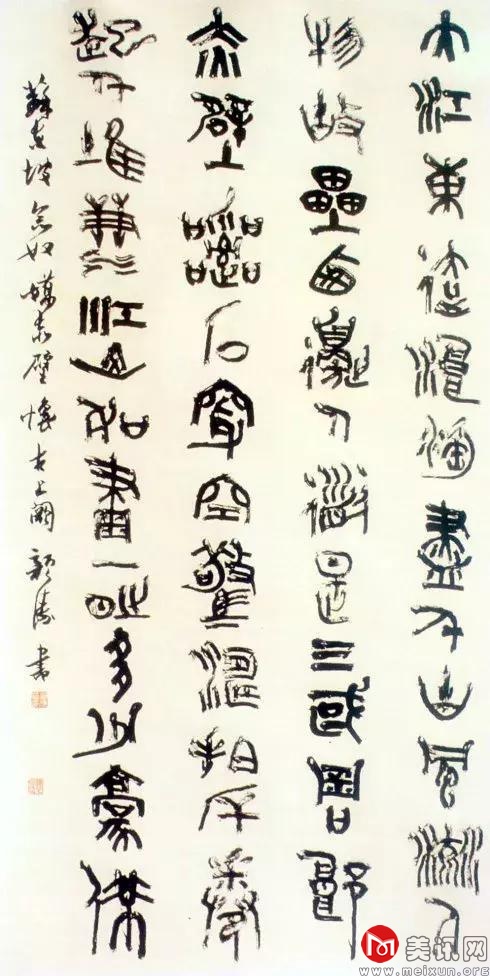 大江東去浪淘盡千古風流人
物故壘西邊人道是三國周郎
赤壁亂石穿空驚濤拍岸卷
起千堆雪江山如畫一時多少豪傑
蘇東坡念奴嬌赤壁懷古上闋 顏濤書
美讯网
www.meixun.org